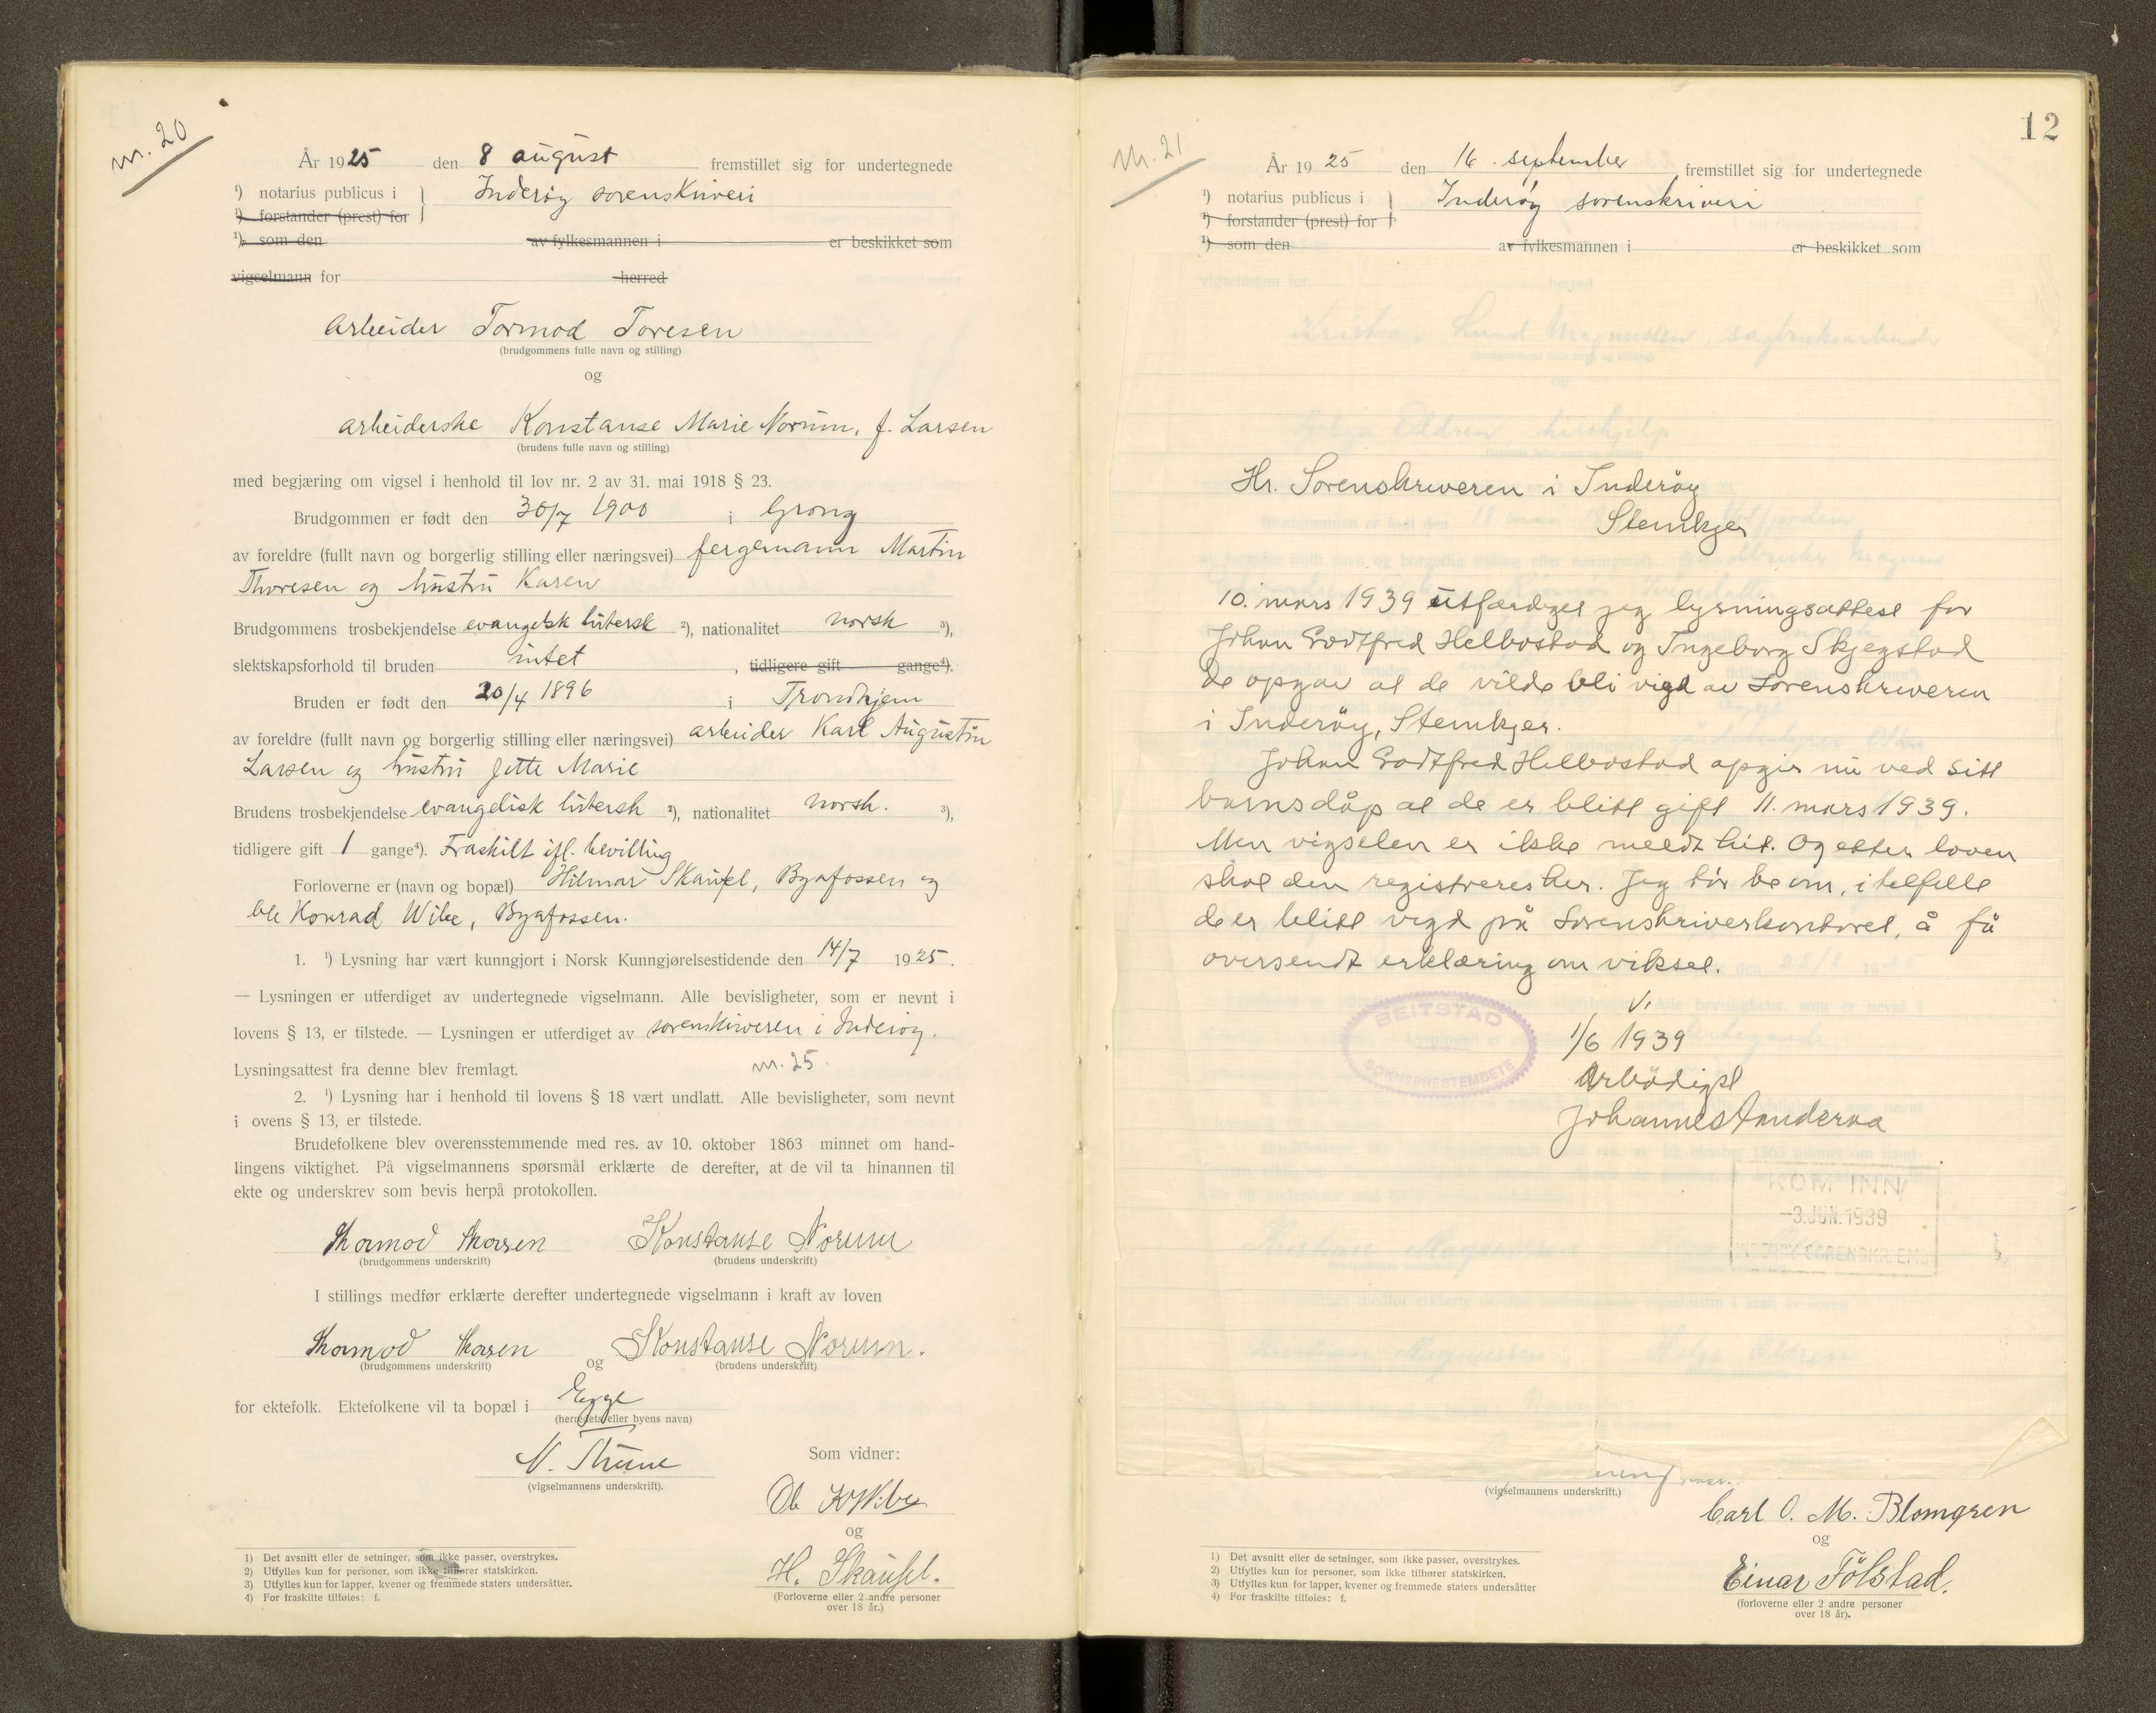 nr. 20
År 1925 den 8 august fremstillet sig for undertegnede
¹) notarius publicus i } Inderøy sorenskriveri
¹) forstander (prest) for
¹) som den av fylkesmannen i er beskikket som
vigselmann for herred
arbeider Tormod Toresen
(brudgommens fulle navn og stilling)
og
arbeiderske Konstanse Marie Norum, f. Larsen
(brudens fulle navn og stilling)
med begjæring om vigsel i henhold til lov nr. 2 av 31. mai 1918 § 23.
Brudgommen er født den 30/7 1900 i Grong
av foreldre (fullt navn og borgerlig stilling eller næringsvei) fergemann Martin
Thoresen og hustru Karen
Brudgommens trosbekjendelse evangelsk lutersk ²), nationalitet norsk ³),
slektskapsforhold til bruden intet , tidligere gift gange⁴).
Bruden er født den 20/4 1896 i Trondhjem
av foreldre (fullt navn og borgerlig stilling eller næringsvei) arbeider Karl Augustin
Larsen og hustru Jette Marie
Brudens trosbekjendelse evangelisk lutersk ²), nationalitet norsk. ³),
tidligere gift 1 gange⁴). Fraskilt ifl. bevilling
Forloverne er (navn og bopæl) Hilmar Skaufel, Byafossen og
Ole Konrad Wibe, Byafossen.
1. ¹) Lysning har vært kunngjort i Norsk Kunngjørelsestidende den 14/7 1925.
— Lysningen er utferdiget av undertegnede vigselmann. Alle bevisligheter, som er nevnt i
lovens § 13, er tilstede. — Lysningen er utferdiget av sorenskriveren i Inderøy.
Lysningsattest fra denne blev fremlagt. nr. 25.
2. ¹) Lysning har i henhold til lovens § 18 vært undlatt. Alle bevisligheter, som nevnt
i ovens § 13, er tilstede.
Brudefolkene blev overensstemmende med res. av 10. oktober 1863 minnet om hand-
lingens viktighet. På vigselmannens spørsmål erklærte de derefter, at de vil ta hinannen til
ekte og underskrev som bevis herpå protokollen.
Thormod Thorsen Konstanse Norum
(brudgommens underskrift) (brudens underskrift)
I stillings medfør erklærte derefter undertegnede vigselmann i kraft av loven
Thormod Thorsen og Konstanse Norum.
(brudgommens underskrift) (brudens underskrift)
for ektefolk. Ektefolkene vil ta bopæl i Egge
(herredets eller byens navn)
N. Thune
(vigselmannens underskrift).
Som vidner:
Ole K Wibe
og
H. Skaufel.
(Forloverne eller 2 andre personer
over 18 år.)
1) Det avsnitt eller de setninger, som ikke passer, overstrykes.
2) Utfylles kun for personer, som ikke tilhører statskirken.
3) Utfylles kun for lapper, kvener og fremmede staters undersåtter.
4) For fraskilte tilføies: f.
12
Nr. 21
År 1925 den 16. september fremstillet sig for undertegnede
¹) notarius publicus i } Inderøy sorenskriveri
¹) forstander (prest) for
¹) som den av fylkesmannen i er beskikket som
Hr. Sorenskriveren i Inderøy
Steinkjer
10. mars 1939 utfærdiget jeg lysningsattest for
Johan Godtfred Helbostad og Ingeborg Skjegstad
De opgav at de vilde bli vigd av Sorenskriveren
i Inderøy, Steinkjer.
Johan Godtfred Helbostad opgir nu ved sitt
barnsdåp at de er blitt gift 11. mars 1939.
Men vigselen er ikke meldt hit. Og etter loven
skal den registreres her. Jeg tør be om, i tilfelle
de er blitt vigd på Sorenskriverkontoret, å få
oversendt erklæring om viksel.
BEITSTAD
SOKNEPRESTEMBETE
1/6 1939
Ærbødigst
Johannes Anderaa
KOM INN
-3.JUN.1939
INDERØY SORENSKR.EMB
(vigselmannens underskrift.)
Carl O. M. Blomgren
og
Einar Fölstad.
(forloverne eller 2 andre personer
over 18 år).
1) Det avsnitt eller de setninger, som ikke passer, overstrykes.
2) Utfylles kun for personer, som ikke tilhører statskirken.
3) Utfylles kun for lapper, kvener og fremmede staters undersåtter
4) For fraskilte tilføies: f.